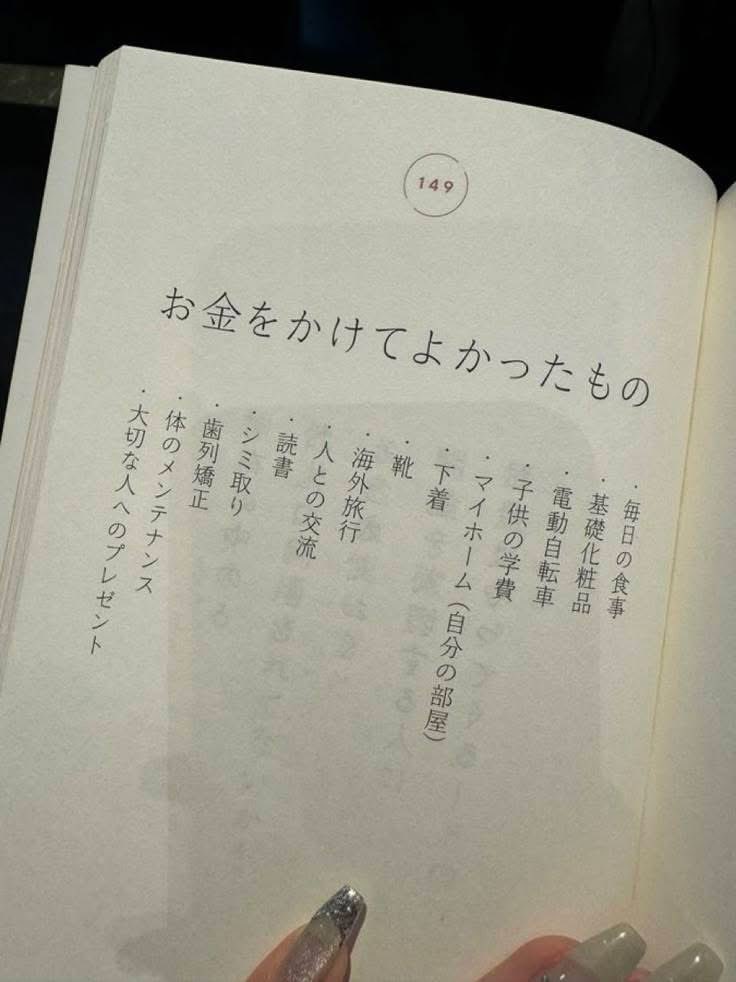 149
お金をかけてよかったもの
・毎日の食事
・基礎化粧品
・電動自転車
・子供の学費
・マイホーム(自分の部屋)
・下着
・靴
・海外旅行
・人との交流
・読書
・シミ取り
・歯列矯正
・体のメンテナンス
・大切な人へのプレゼント